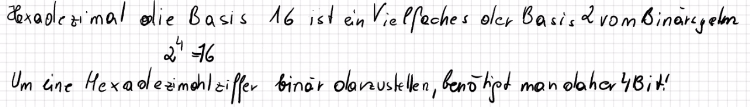 Hexadezimal die Basis 16 ist ein Vielfaches der Basis 2 vom Binärsystem
2⁴=16
Um eine Hexadezimahlziffer binär darzustellen, benötigt man daher 4 Bit!